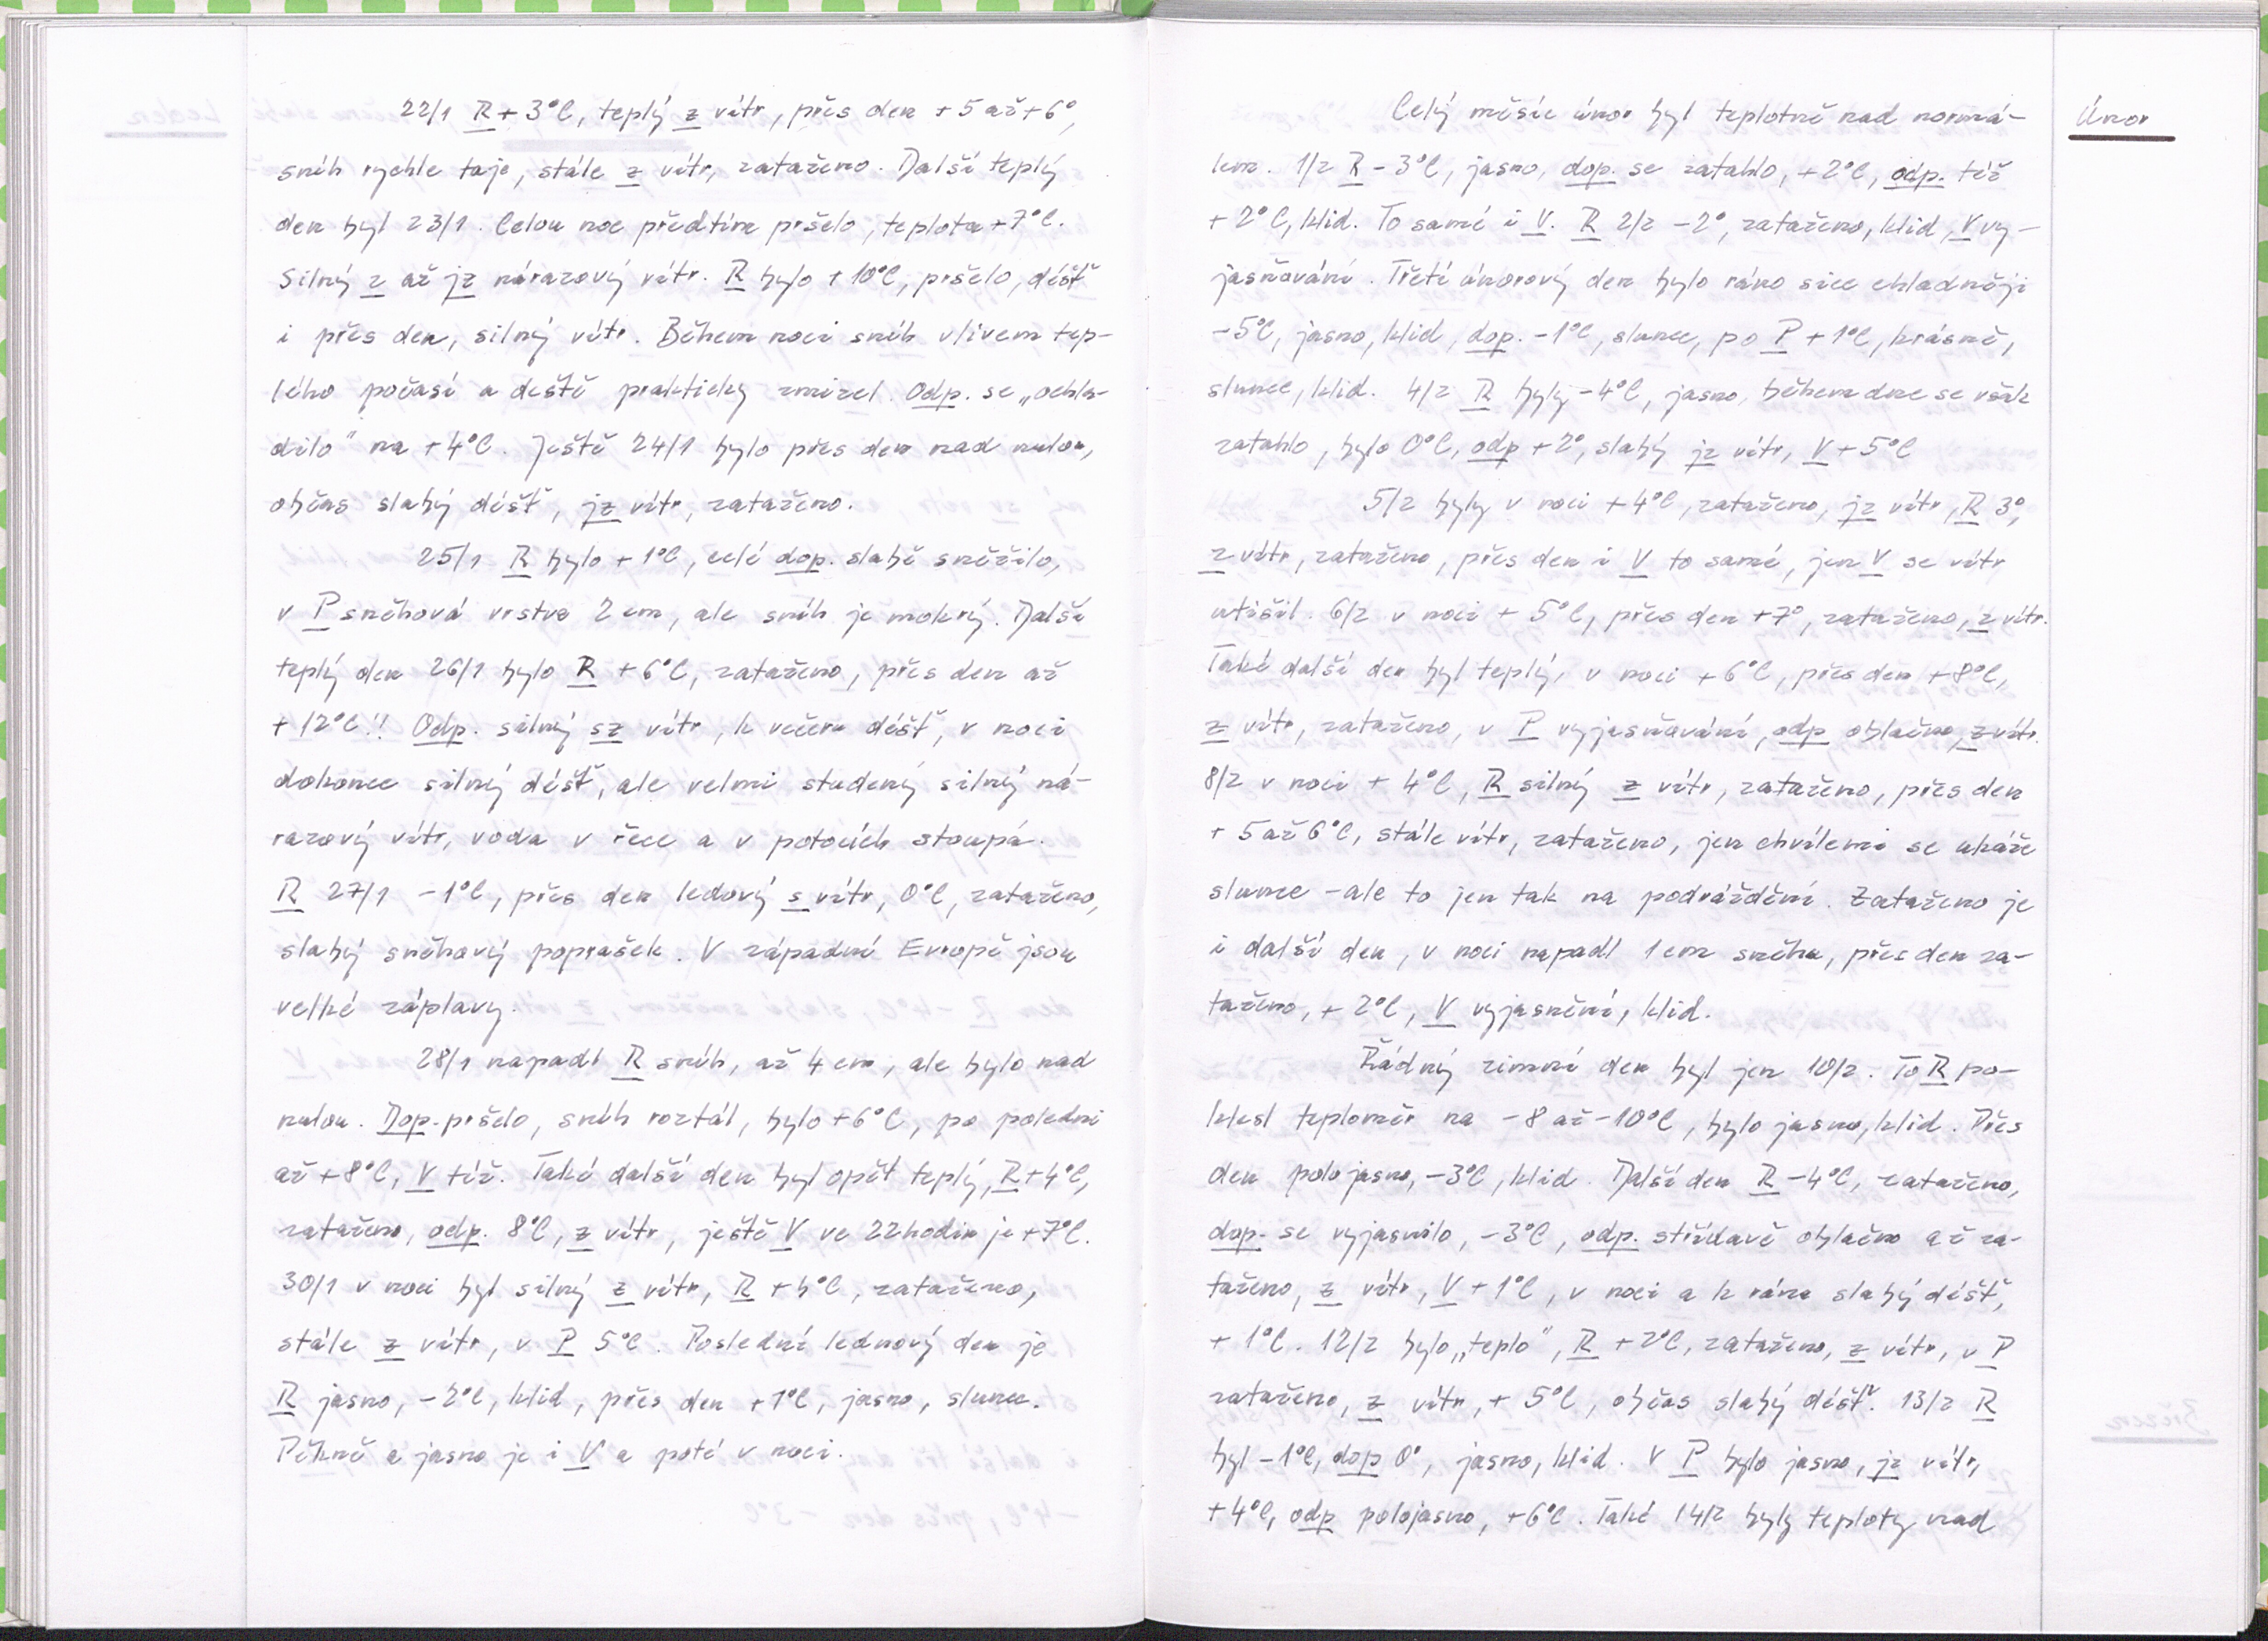 22/1 R + 3°C, teplý z vítr, přes den + 5 až + 6°,
sníh rychle taje, stále z vítr, zataženo. Další teplý
den byl 23/1. Celou noc předtím pršelo, teplota + 7°C.
Silný z až jz nárazový vítr. R bylo + 10°C, pršelo, déšť
i přes den, silný vítr. Během noci sníh vlivem tep-
lého počasí a deště prakticky zmizel. Odp. se „ochla-
dilo" na + 4°C. Ještě 24/1 bylo přes den nad nulou,
občas slabý déšť, jz vítr, zataženo.
25/1 R bylo + 1°C, celé dop. slabě sněžilo,
v P sněhová vrstva 2 cm, ale sníh je mokrý. Další
teplý den 26/1 bylo R + 6°C, zataženo, přes den až
+ 12°C!! Odp. silný sz vítr, k večeru déšť, v noci
dokonce silný déšť, ale velmi studený silný ná-
razový vítr, voda v řece a v potocích stoupá.
R 27/1 - 1°C, přes den ledový s vítr, 0°C, zataženo,
slabý sněhový poprašek. V západní Evropě jsou
velké záplavy.
28/1 napadl R sníh, až 4 cm, ale bylo nad
nulou. Dop. pršelo, sníh roztál, bylo + 6°C, po poledni
až + 8°C, V též. Také další den byl opět teplý, R + 4°C,
zataženo, odp. 8°C, z vítr, ještě V ve 22 hodin je + 7°C.
30/1 v noci byl silný z vítr, R + 4°C, zataženo,
stále z vítr, v P 5°C. Poslední lednový den je
R jasno, - 2°C, klid, přes den + 1°C, jasno, slunce.
Pěkně a jasno je i V a poté v noci.
Únor
Celý měsíc únor byl teplotně nad normá-
lem. 1/2 R - 3°C, jasno, dop. se zatáhlo, + 2°C, odp. též
+ 2°C, klid. To samé i V. R 2/2 - 2°, zataženo, klid, V vy-
jasňování. Třetí únorový den bylo ráno sice chladněji
- 5°C, jasno, klid, dop. - 1°C, slunce, po P + 1°C, krásně,
slunce, klid. 4/2 R byly - 4°C, jasno, během dne se však
zatáhlo, bylo 0°C, odp + 2°, slabý jz vítr, V + 5°C
5/2 byly v noci + 4°C, zataženo, jz vítr, R 3°,
z vítr, zataženo, přes den i V to samé, jen V se vítr
utišil. 6/2 v noci + 5°C, přes den + 7°, zataženo, z vítr.
Také další den byl teplý, v noci + 6°C, přes den + 8°C,
z vítr, zataženo, v P vyjasňování, odp oblačno, z vítr.
8/2 v noci + 4°C, R silný z vítr, zataženo, přes den
+ 5 až 6°C, stále vítr, zataženo, jen chvílemi se ukáže
slunce - ale to jen tak na podráždění. Zataženo je
i další den, v noci napadl 1 cm sněhu, přes den za-
taženo, + 2°C, V vyjasnění, klid.
Řádný zimní den byl jen 10/2. To R po-
klesl teploměr na - 8 až - 10°C, bylo jasno, klid. Přes
den polojasno, - 3°C, klid. Další den R - 4°C, zataženo,
dop. se vyjasnilo, - 3°C, odp. střídavě oblačno až za-
taženo, z vítr, V + 1°C, v noci a k ránu slabý déšť,
+ 1°C. 12/2 bylo „teplo", R + 2°C, zataženo, z vítr, v P
zataženo, z vítr, + 5°C, občas slabý déšť. 13/2 R
byl - 1°C, dop 0°, jasno, klid. V P bylo jasno, jz vítr,
+ 4°C, odp polojasno, + 6°C. Také 14/2 byly teploty nad